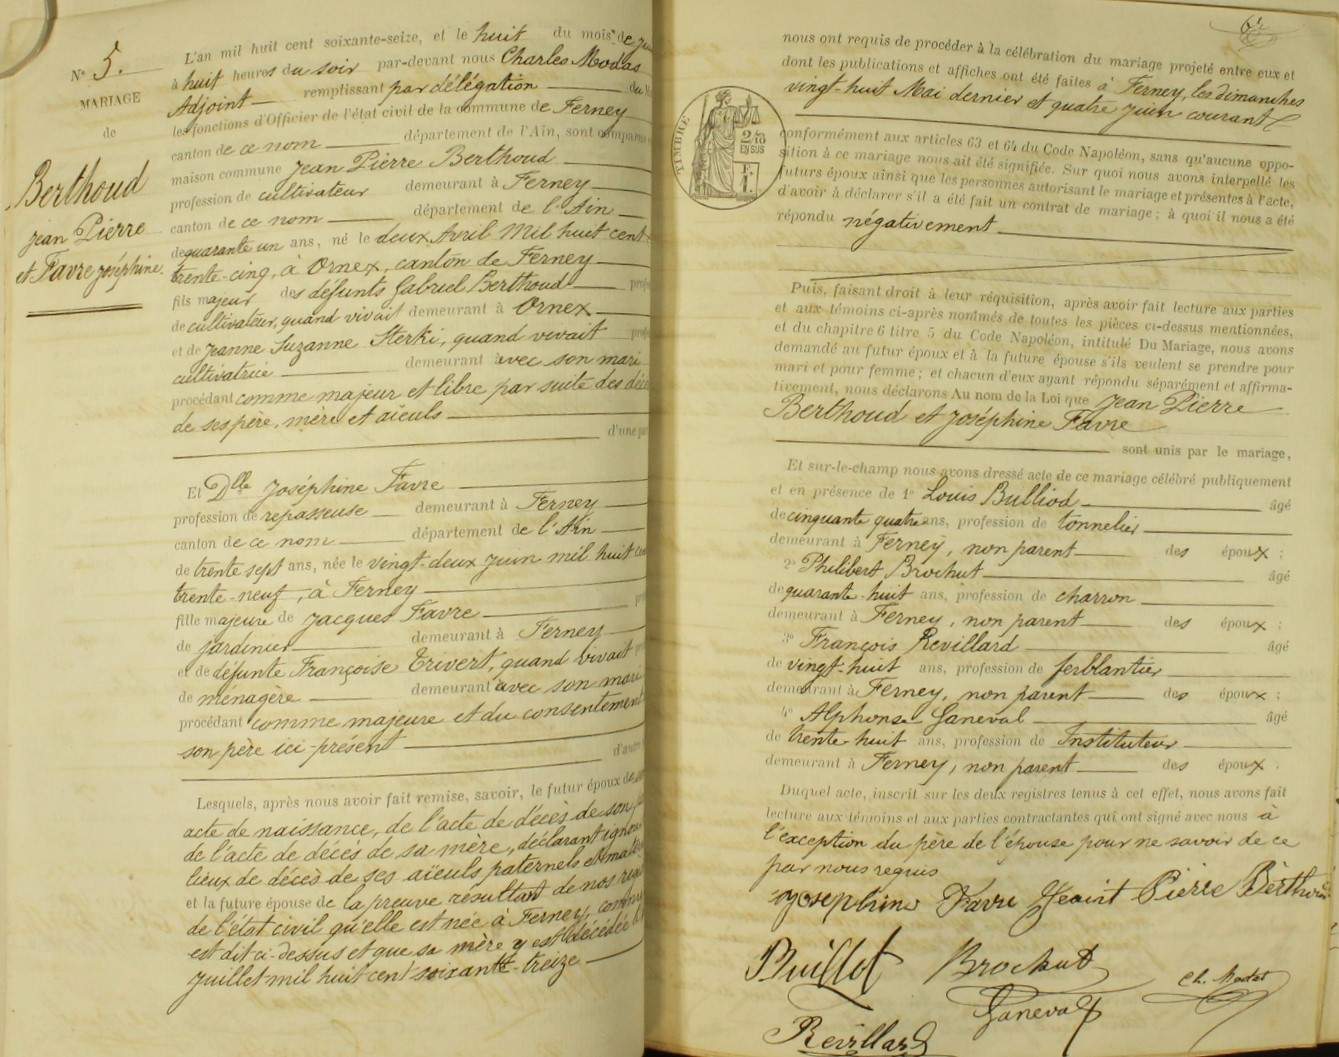 N° 5.
MARIAGE
de
Berthoud
Jean Pierre
et Favre Joséphine.
L'an mil huit cent soixante-seize, et le huit du mois de
à huit heures du soir par-devant nous Charles Modas
Adjoint remplissant par délégation
les fonctions d'Officier de l'état civil de la commune de Ferney
canton de ce nom département de l'Ain, sont comparus
maison commune Jean Pierre Berthoud
profession de cultivateur demeurant à Ferney
canton de ce nom département de l'Ain
de quarante un ans, né le deux Avril mil huit cent
trente-cinq, à Ornex, canton de Ferney
fils majeur des défunts Gabriel Berthoud
de cultivateur, quand vivait demeurant à Ornex
et de Jeanne Suzanne Sterki, quand vivait
cultivatrice demeurant avec son mari
procédant comme majeur et libre par suite des
de ses père, mère et aïeuls
d'une
Et Dlle Joséphine Favre
profession de repasseuse demeurant à Ferney
canton de ce nom département de l'Ain
de trente sept ans, née le vingt-deux juin mil huit
trente-neuf, à Ferney
fille majeure de Jacques Favre
de jardinier demeurant à Ferney
et de défunte Françoise Trivert, quand vivait
de ménagère demeurant avec son mari
procédant comme majeure et du consentement
son père ici présent
Lesquels, après nous avoir fait remise, savoir, le futur époux de
acte de naissance, de l'acte de décès de son
de l'acte de décès de sa mère, déclarant
lieux de décès de ses aïeuls paternels et
et la future épouse de la preuve résultant de nos
de l'état civil qu'elle est née à Ferney, comme
est dit ci-dessus et que sa mère y est décédée
juillet mil huit cent soixante-treize
62
nous ont requis de procéder à la célébration du mariage projeté entre eux et
dont les publications et affiches ont été faites à Ferney, les dimanches
vingt-huit Mai dernier et quatre juin courant
TIMBRE
2/10
EN SUS
conformément aux articles 63 et 64 du Code Napoléon, sans qu'aucune oppo-
sition à ce mariage nous ait été signifiée. Sur quoi nous avons interpellé les
futurs époux ainsi que les personnes autorisant le mariage et présentes à l'acte,
d'avoir à déclarer s'il a été fait un contrat de mariage ; à quoi il nous a été
répondu négativement
Puis, faisant droit à leur réquisition, après avoir fait lecture aux parties
et aux témoins ci-après nommés de toutes les pièces ci-dessus mentionnées,
et du chapitre 6 titre 5 du Code Napoléon, intitulé Du Mariage, nous avons
demandé au futur époux et à la future épouse s'ils veulent se prendre pour
mari et pour femme ; et chacun d'eux ayant répondu séparément et affirma-
tivement, nous déclarons Au nom de la Loi que Jean Pierre
Berthoud et Joséphine Favre
sont unis par le mariage,
Et sur-le-champ nous avons dressé acte de ce mariage célébré publiquement
et en présence de 1° Louis Bulliod âgé
de cinquante quatre ans, profession de tonnelier
demeurant à Ferney, non parent des époux ;
2° Philibert Brochut âgé
de quarante-huit ans, profession de charron
demeurant à Ferney, non parent des époux ;
3° François Revillard âgé
de vingt-huit ans, profession de ferblantier
demeurant à Ferney, non parent des époux ;
4° Alphonse Ganeval âgé
de trente-huit ans, profession de Instituteur
demeurant à Ferney, non parent des époux .
Duquel acte, inscrit sur les deux registres tenus à cet effet, nous avons fait
lecture aux témoins et aux parties contractantes qui ont signé avec nous à
l'exception du père de l'épouse pour ne savoir de ce
par nous requis
Josephine Favre Pierre
Brochut
Ch. Modas
Ganeval
Revillard